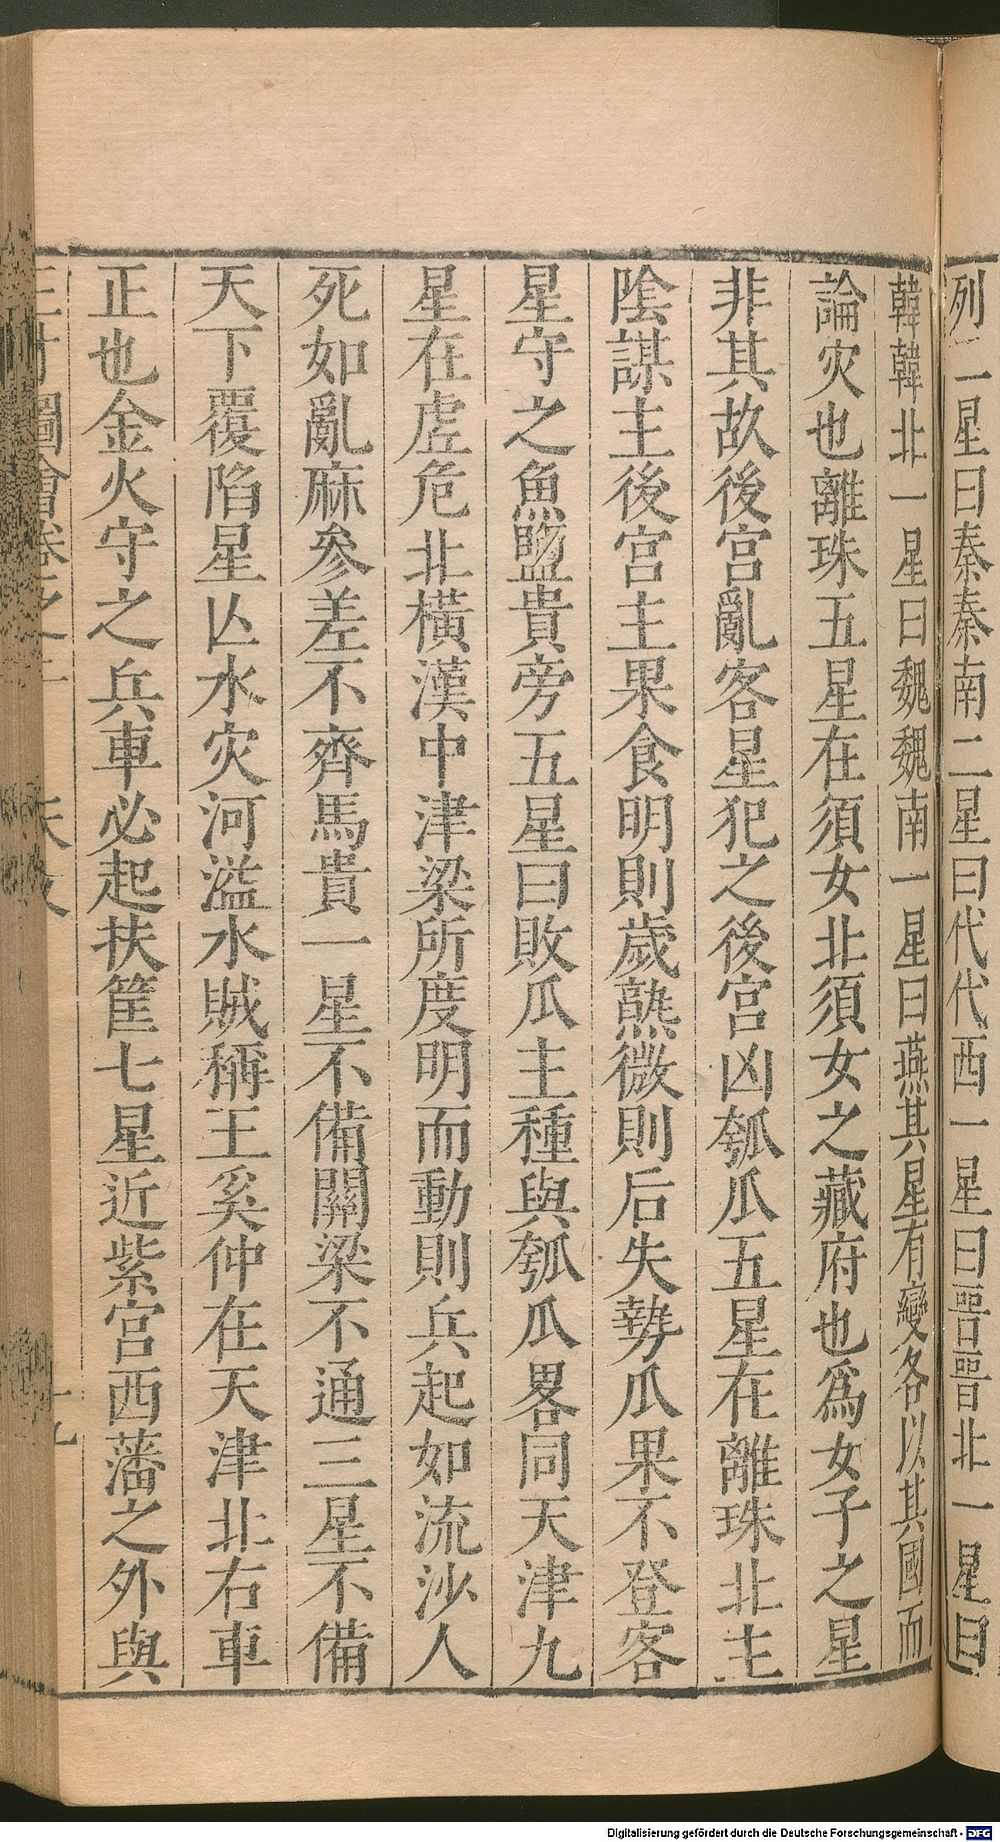 列一星曰秦秦南二星曰代代西一星曰晋晋北一星曰
韓韓北一星曰魏魏南一星曰燕其星有變各以其國而
論灾也離珠五星在須女北須女之藏府也為女子之星
非其故後宮亂客星犯之後宮凶瓠瓜五星在離珠北主
陰謀主後宮主果食明則歲熟微則后失勢瓜果不登客
星守之魚盬貴旁五星曰敗瓜主種與瓠瓜畧同天津九
星在虗危北橫漢中津梁所度明而動則兵起如流沙人
死如亂麻參差不齊馬貴一星不備關梁不通三星不備
天下覆陷星亾水灾河溢水賊稱王奚仲在天津北右車
正也金火守之兵車必起扶筐七星近紫宮西藩之外與
圖會卷之
Digitalisierung gefördert durch die Deutsche Forschungsgemeinschaft - DFG